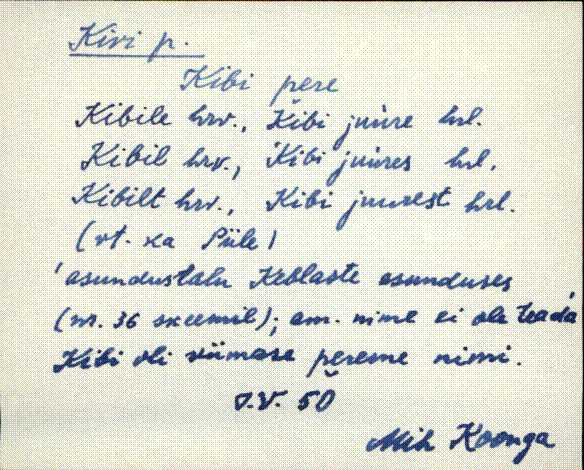 Kivi p.
Kibi pere
Kibile hrv., Kibi juure hrl.
Kibil hrv., Kibi juures hrl.
Kibilt hrv., Kibi juurest hrl.
(vt. ka Piile)
'asundustalu Keblaste asunduses
(nr. 36 skeemil); am. nime ei ole teada
Kibi oli viimase pereme nimi.
J.V. 50
Mih Koonga